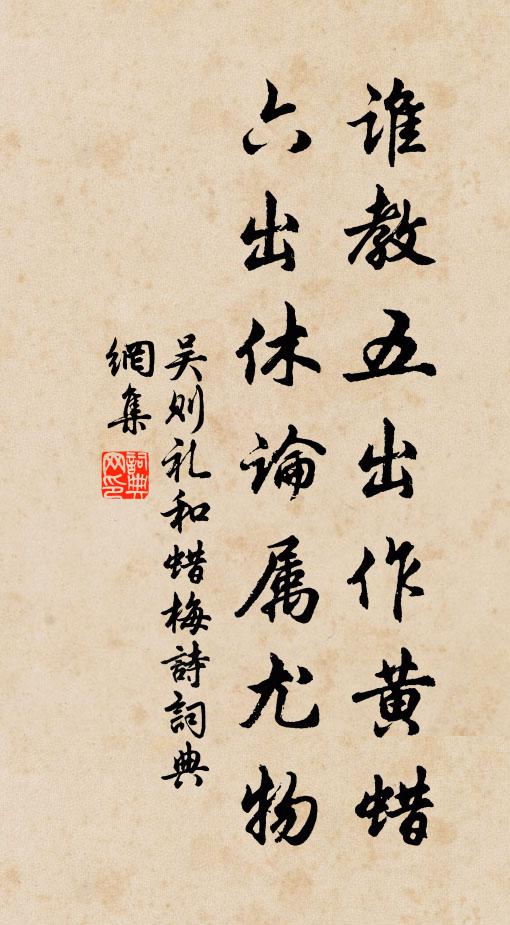 谁教五出作黄蜡
六出休论属尤物
吴则礼和蜡梅詩詞典
網集
詞典
网印